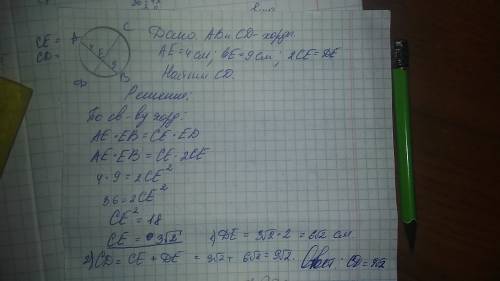 CE =
CD =
A
C
E
4
9
B
Дано: AB и CD - хорды
AE = 4 см; BE = 9 см; 2CE = DE
Найти CD.
Решение:
По св-ву хорд:
AE · EB = CE · ED
AE · EB = CE · 2CE
4 · 9 = 2CE²
36 = 2CE²
CE² = 18
CE = 3√2
1) DE = 3√2 · 2 = 6√2 см
2) CD = CE + DE = 3√2 + 6√2 = 9√2. Ответ: CD = 9√2